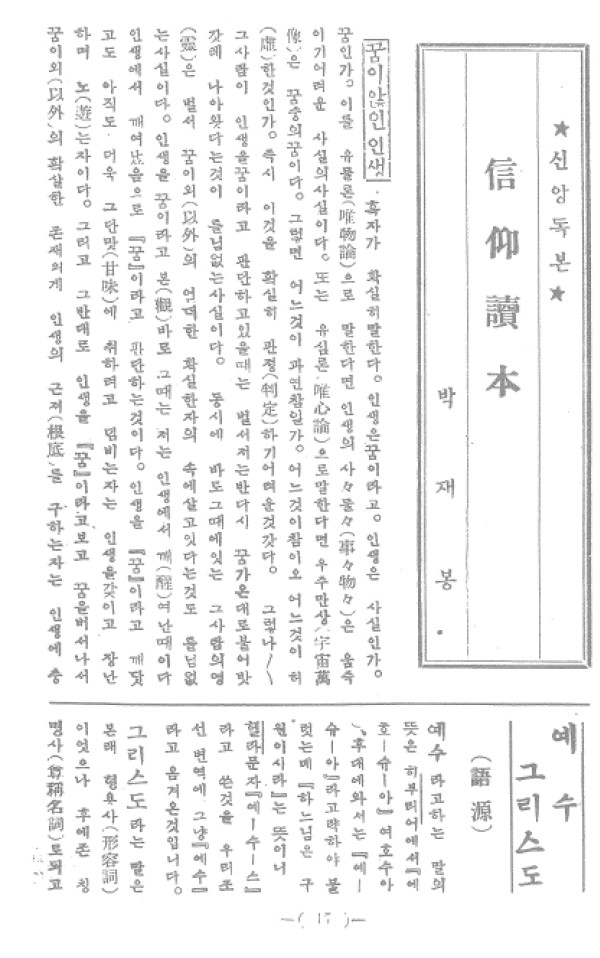 ★신앙독본★
信仰讀本
박재봉
꿈이않인인생 · 혹자가 확실히말한다。인생은꿈이라고。인생은 사실인가。
꿈인가。이를 유물론(唯物論)으로 말한다면 인생의 사々물々(事々物々)은 움즉
이기어려운 사실의사실이다。또는 유심론(唯心論)으로말한다면 우주만상(宇宙萬
像)은 꿈중의꿈이다。그렇면 어느것이 과연참일가。어느것이참이오 어느것이 허
(虛)한것인가。즉시 이것을 확실히 판정(判定)하기어려운것갓다。 그렇나〳〵
그사람이 인생을꿈이라고 판단하고있을때는 벌서저는반다시 꿈가온대로붙어밧
갓테 나아왓다는것이 틀님없는사실이다。 동시에 바로그때에잇는 그사람의영
(靈)은 벌서 꿈이외(以外)의 어떠한 확실한자의 속에살고잇다는것도 틀님없
는사실이다。인생을 꿈이라고 본(觀)바로 그때는 저는 인생에서 깨(醒)여난때이다
인생에서 깨여낫음으로 『꿈』이라고 판단하는것이다。인생을 『꿈』이라고 깨닷
고도 아직도 더욱 그단맛(甘味)에 취하려고 덤비는자는 인생을갖이고 장난
하며 노(遊)는자이다。그리고 그반대로 인생을 『꿈』이라고보고 꿈을버서나서
꿈이외(以外)의 확실한 존재의게 인생의 근저(根底)를 구하는자는 인생에 충
예수
그리스도
(語源)
예수라고하는 말의
뜻은 히부리어에서『예
호ー슈ー아』여호수아
、후대에와서는 『예ー
슈ー아』라고략하야 불
럿는데 『하느님은 구
원이시라』는 뜻이니
헬라문자『예ー수ー스』
라고 쓴것을 우리조
선 번역에 그냥『예수』
라고 옴겨온것입니다。
그리스도라는 말은
본래 형용사(形容詞)
이엇으나 후에존 칭
명사(尊稱名詞)로되고
—( 17 )—